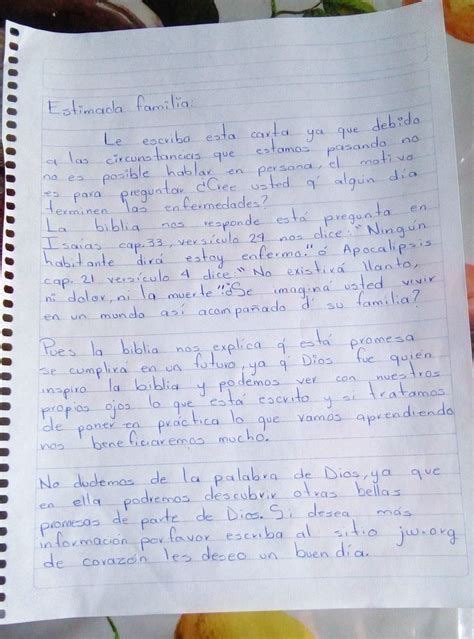 Estimada familia:
Le escriba esta carta ya que debido
a las circunstancias que estamos pasando no
no es posible hablar en persona, el motivo
es para preguntar ¿Cree usted q' algún día
terminen las enfermedades?
La biblia nos responde está pregunta en
Isaías cap. 33, versículo 24 nos dice: "Ningún
habitante dirá estoy enfermo." ó Apocalipsis
cap. 21 versículo 4 dice: "No existirá llanto,
ni dolor, ni la muerte" ¿Se imagina usted vivir
en un mundo así acompañado d' su familia?
Pues la biblia nos explica q' está promesa
se cumplirá en un futuro, ya q' Dios fue quién
inspiro la biblia y podemos ver con nuestros
propios ojos lo que está escrito y si tratamos
de poner en práctica lo que vamos aprendiendo
nos beneficiaremos mucho.
No dudemos de la palabra de Dios, ya que
en ella podremos descubrir otras bellas
promesas de parte de Dios. Si desea más
información por favor escriba al sitio jw.org
de corazón les deseo un buen día.